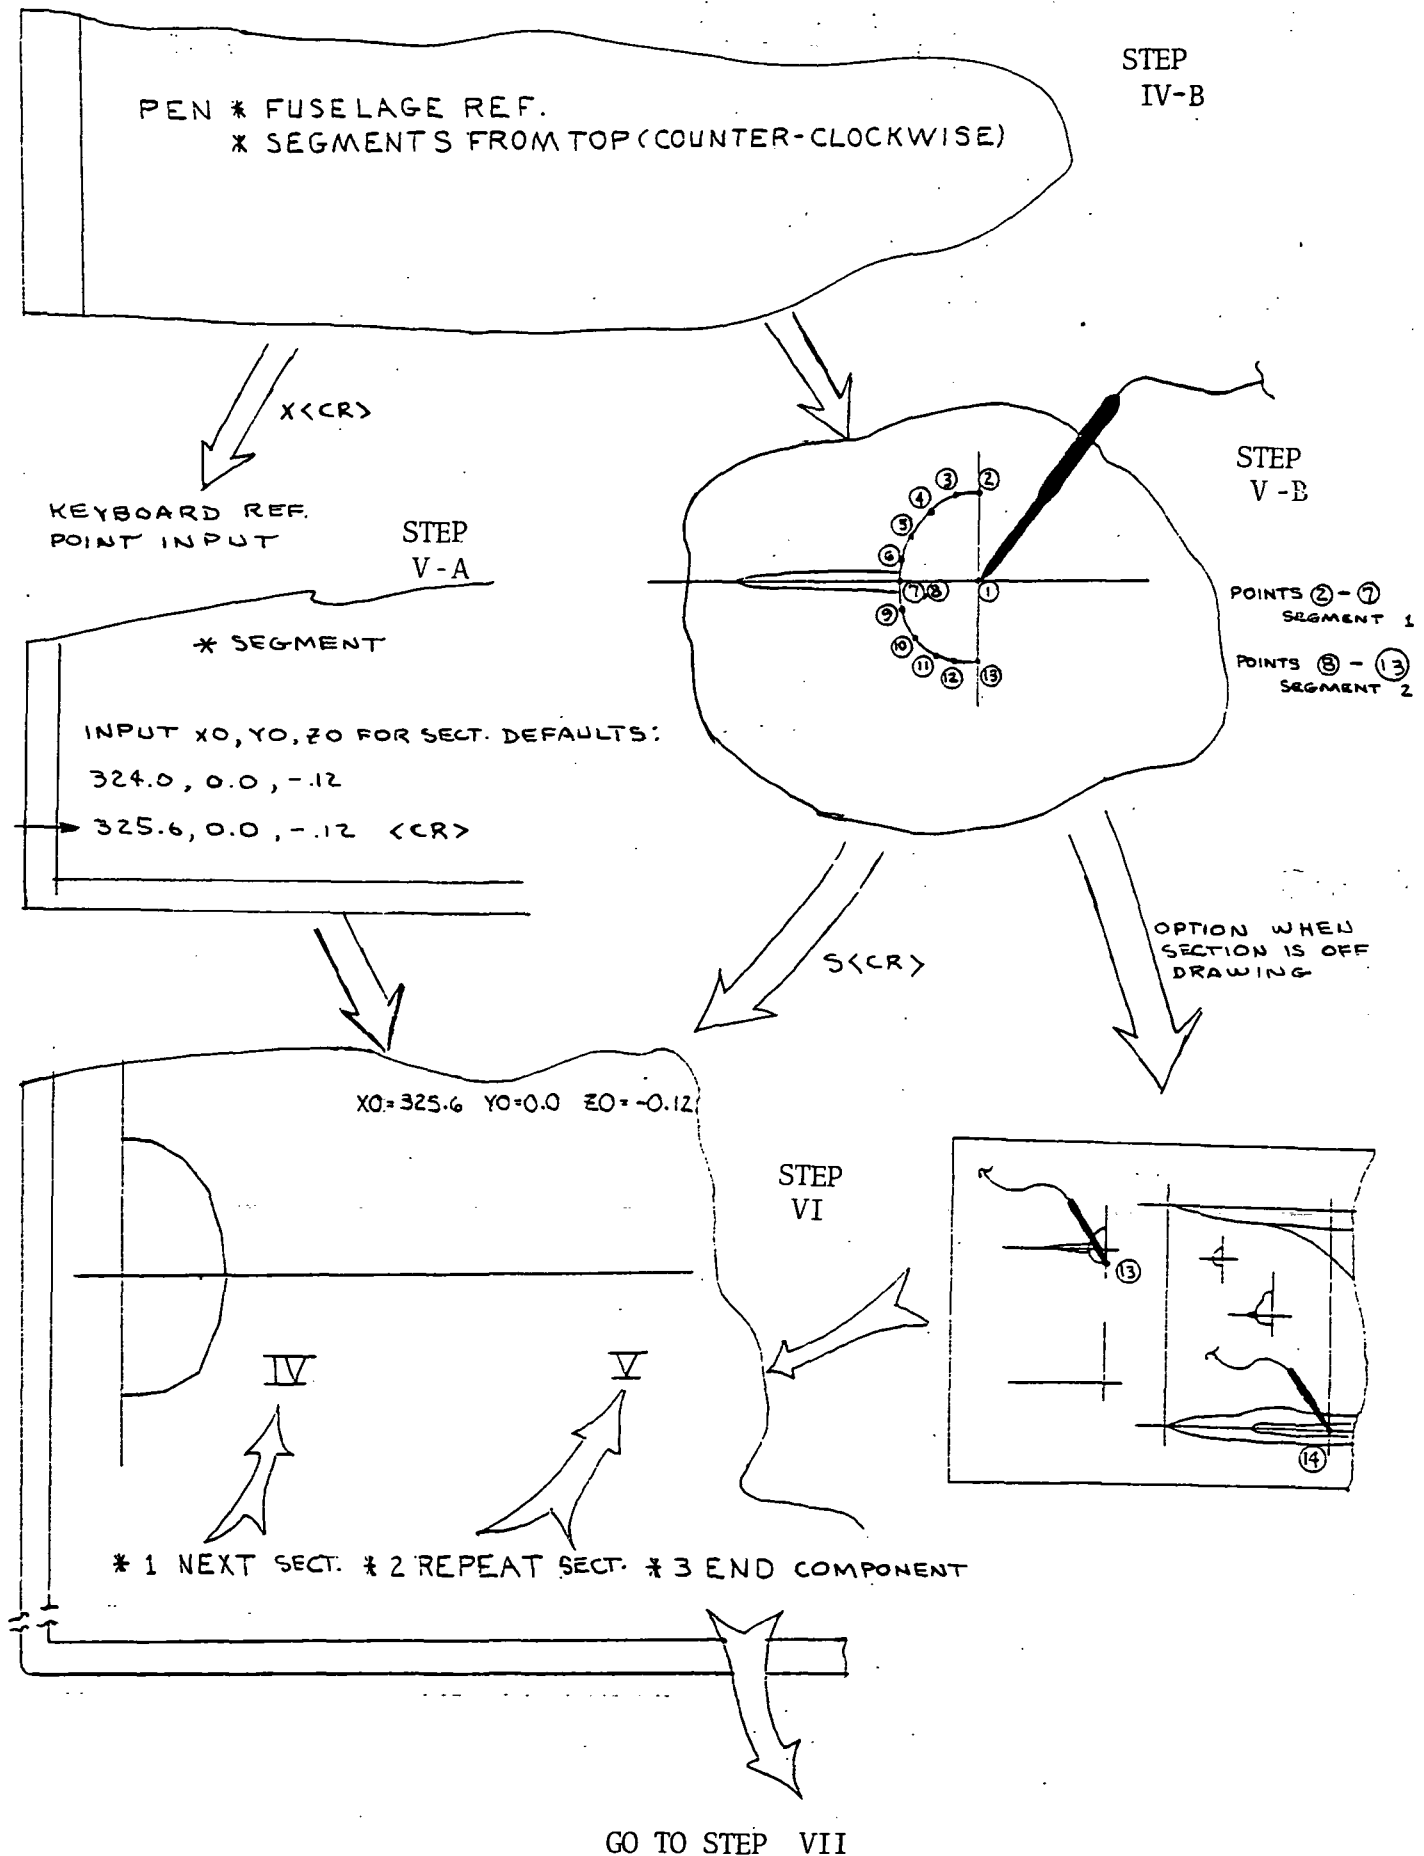 STEP
IV-B
PEN * FUSELAGE REF.
* SEGMENTS FROM TOP (COUNTER-CLOCKWISE)
X<CR>
KEYBOARD REF.
POINT INPUT
STEP
V-A
* SEGMENT
INPUT XO, YO, ZO FOR SECT. DEFAULTS:
324.0, 0.0, -.12
325.6, 0.0, -.12 <CR>
STEP
V-B
2
3
4
5
6
7
8
1
9
10
11
12
13
POINTS 2 - 7
SEGMENT 1
POINTS 8 - 13
SEGMENT 2
S<CR>
OPTION WHEN
SECTION IS OFF
DRAWING
XO=325.6 YO=0.0 ZO=-0.12
STEP
VI
13
14
IV
V
* 1 NEXT SECT. * 2 REPEAT SECT. * 3 END COMPONENT
GO TO STEP VII